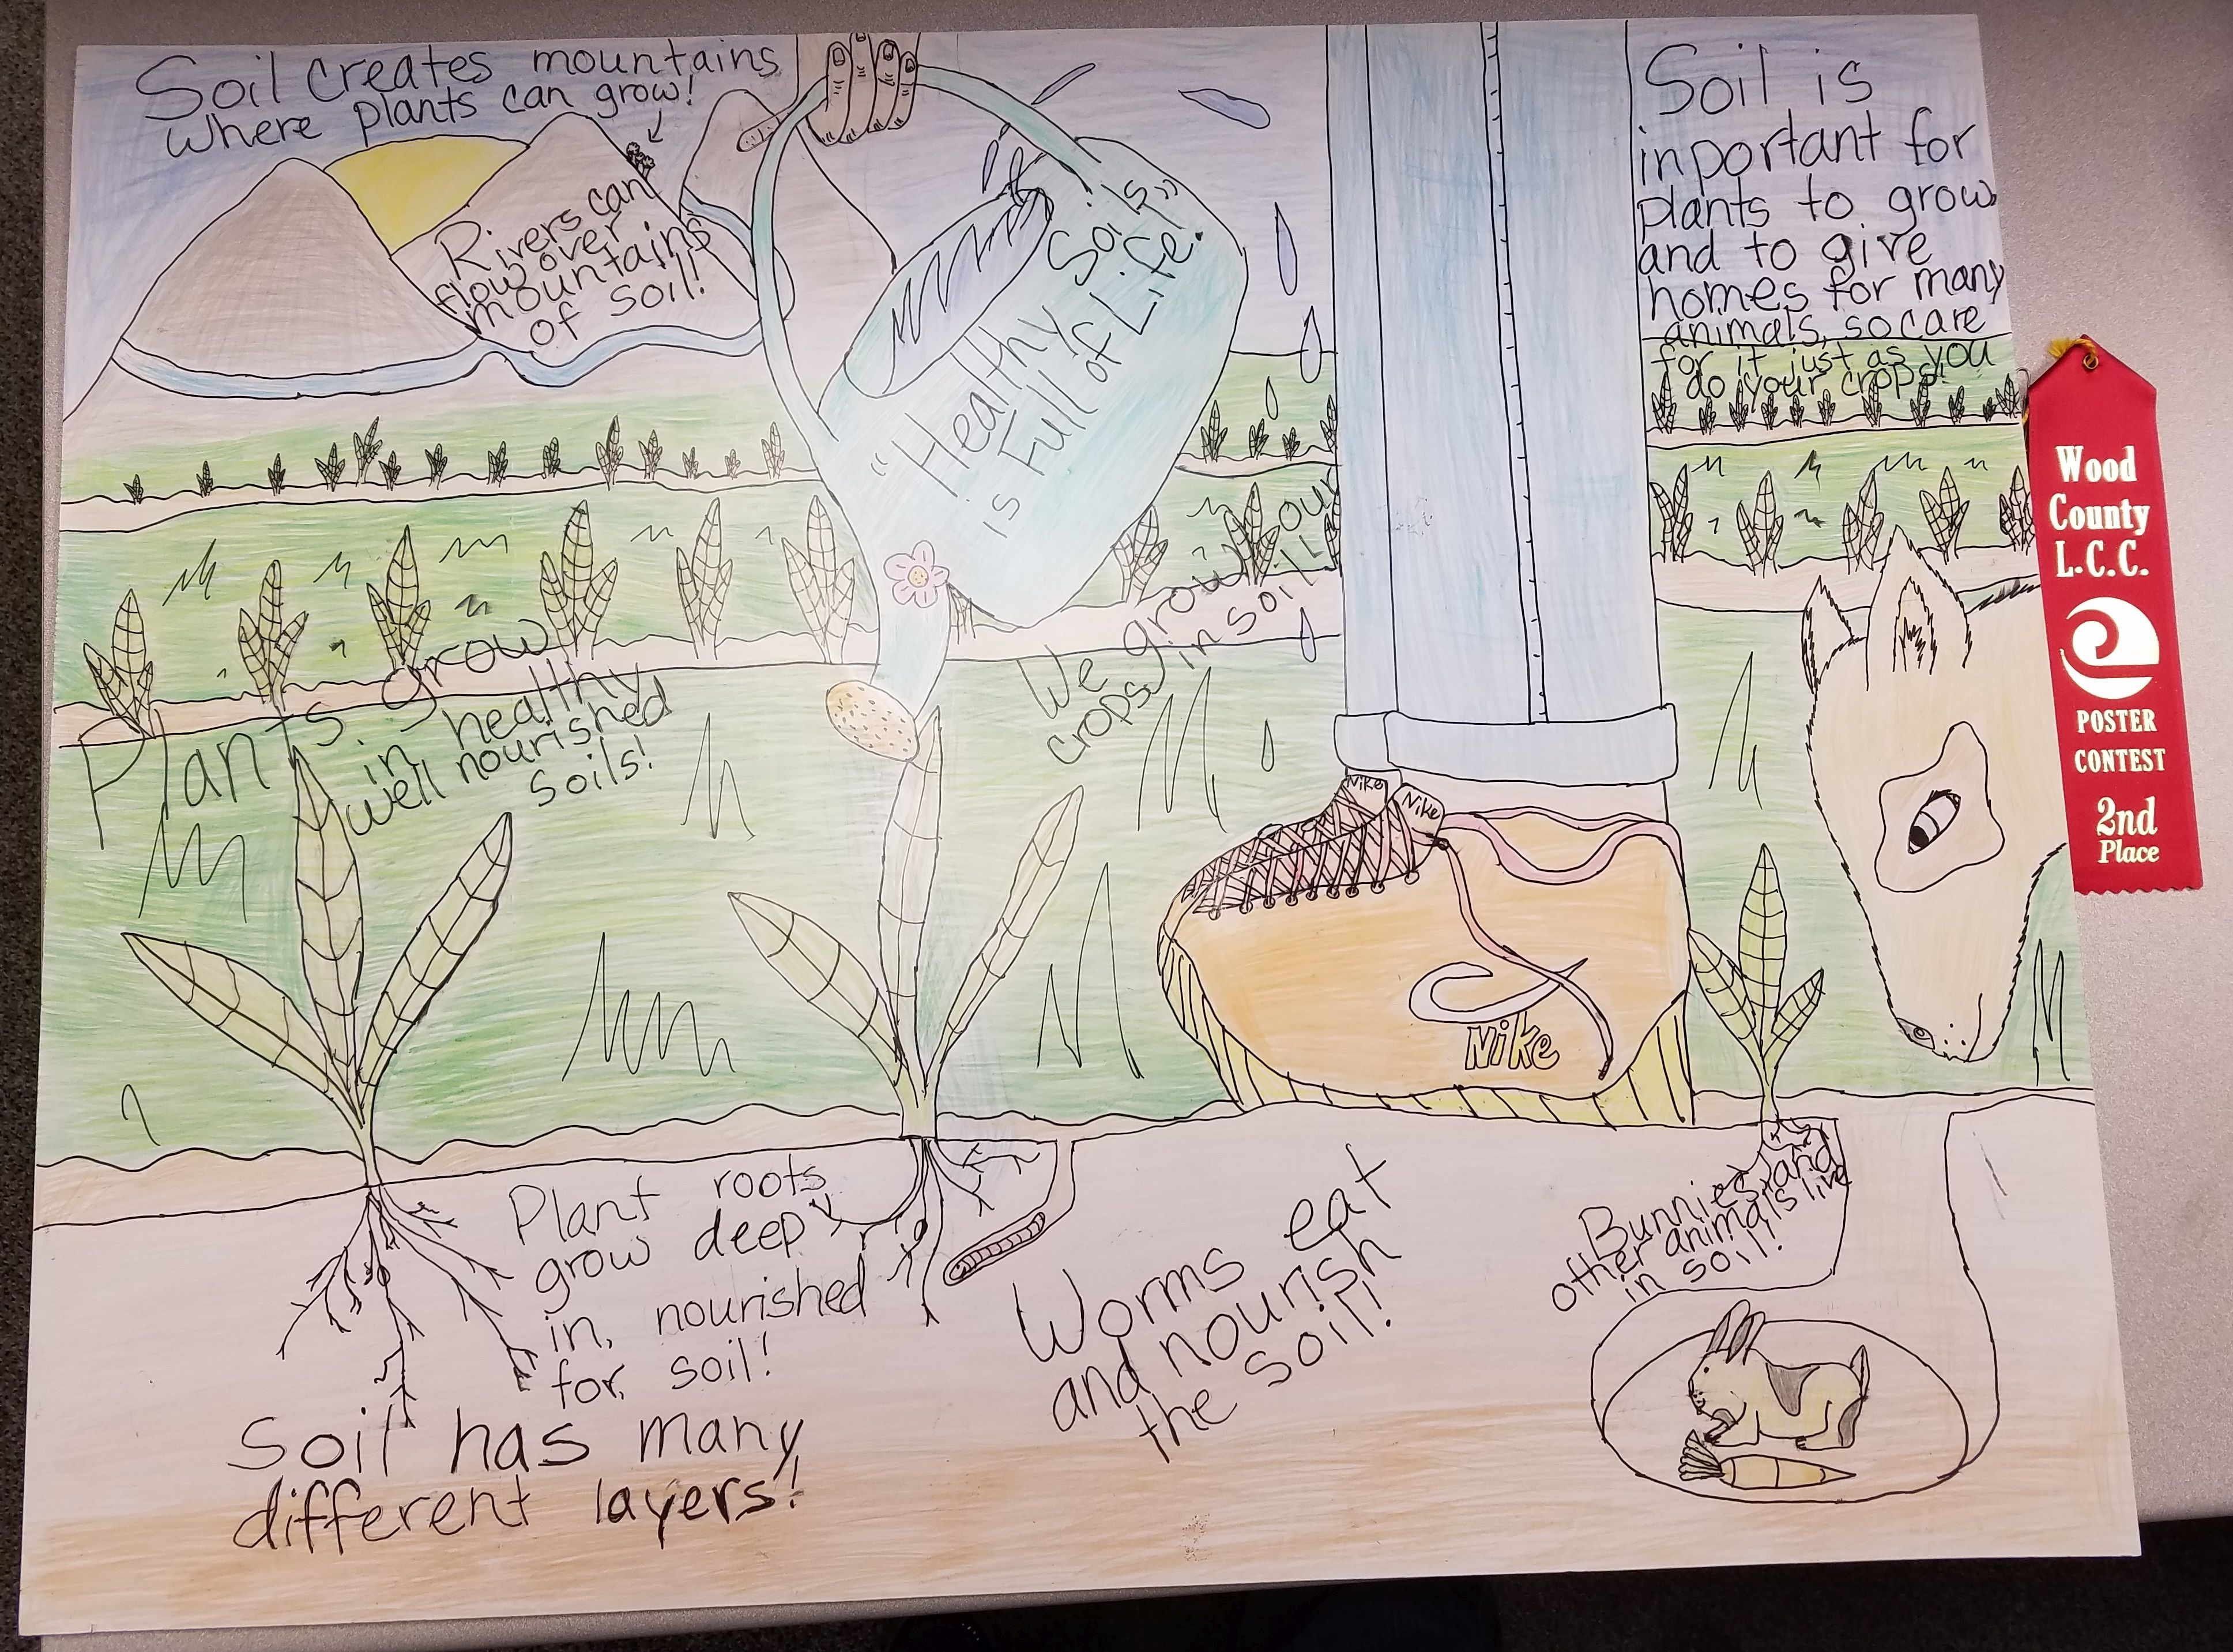 Soil creates mountains
where plants can grow!
Rivers can
flow over
mountains
of soil!
"Healthy Soils"
is Full of Life.
Soil is
inportant for
plants to grow,
and to give
homes for many
animals, so care
for it just as you
do your crops!
Wood
County
L.C.C.
POSTER
CONTEST
2nd
Place
Plants grow
in healthy
well nourished
soils!
We grow our
crops in soil!
Nike
Nike
Nike
Plant roots
grow deep
in, nourished
for, soil!
Worms eat
and nourish
the soil!
Bunnies and
other animals live
in soil!
Soil has many
different layers!